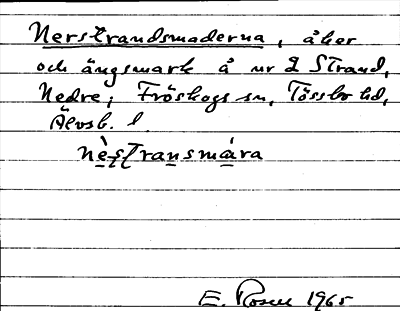 Nerstrandsmaderna, åker
och ängsmark å nr 2 Strand,
Nedre; Fröskogs sn, Tössbo hd,
Älvsb. l.
nèstransmára
E. Rosell 1965